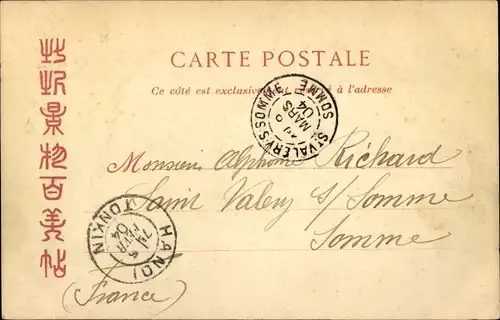 CARTE POSTALE
Ce côté est exclusivement réservé à l'adresse
景物百美帖
ST VALERY S SOMME SOMME
MARS
04
Monsieur Alphonse Richard
Saint Valery s/ Somme
Somme
(France)
HANOI TONKIN
5
FEVR
04